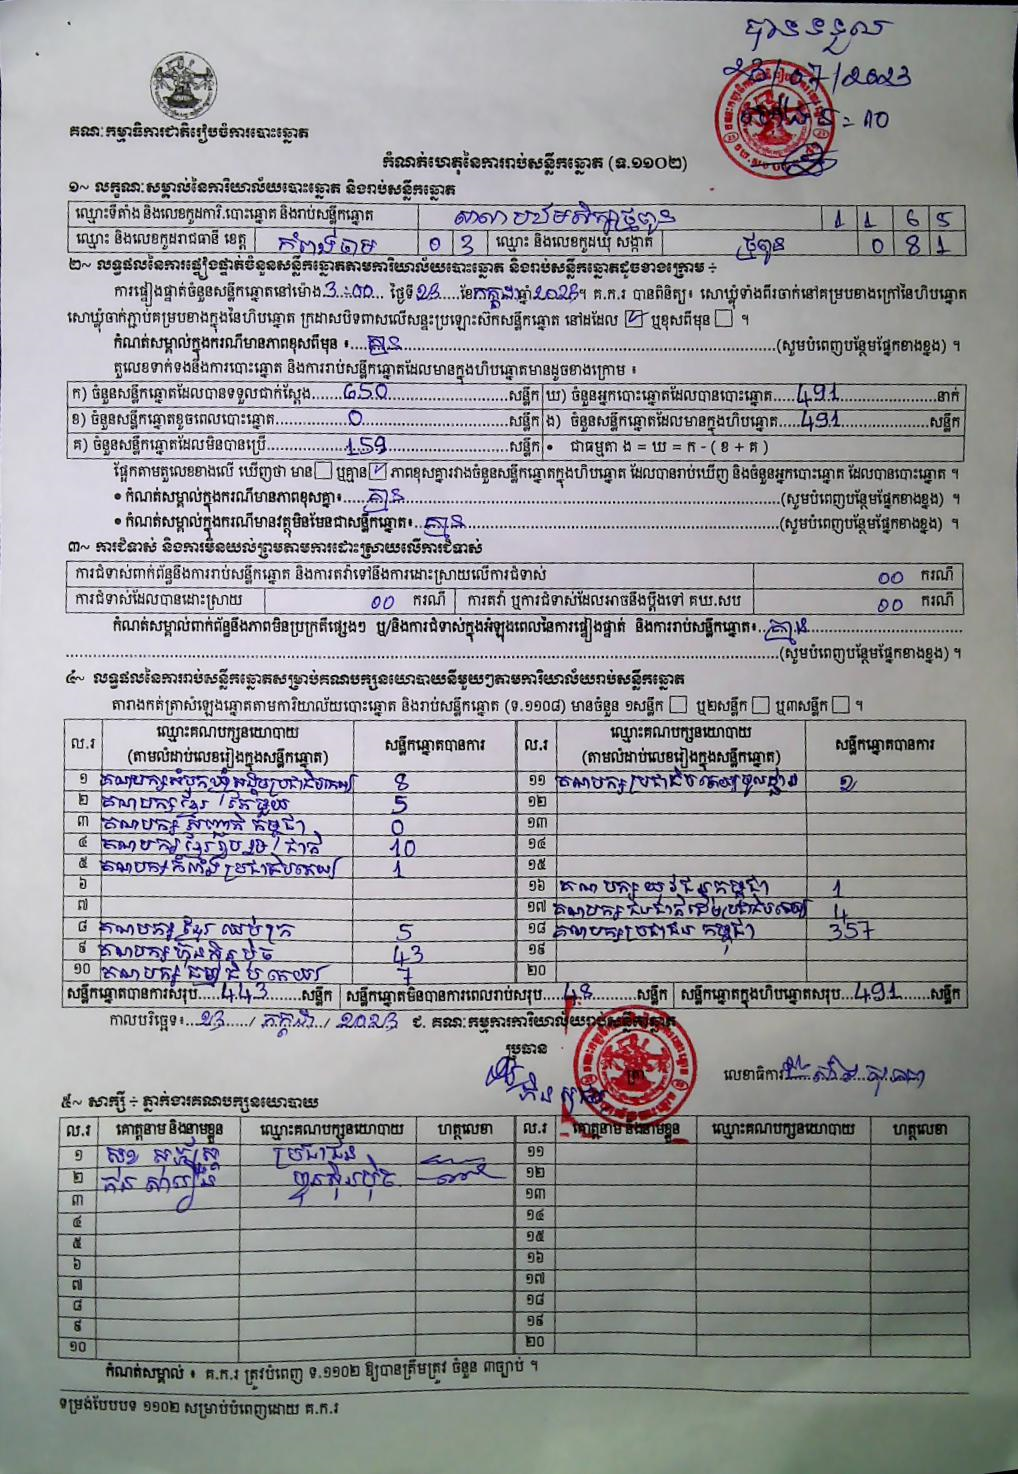 បានទទួល
23/07/2023
គណៈកម្មាធិការជាតិរៀបចំការបោះឆ្នោត
កំណត់ហេតុនៃការរាប់សន្លឹកឆ្នោត (ទ.១១០២)
១~ លក្ខណៈសម្គាល់នៃការិយាល័យបោះឆ្នោត និងរាប់សន្លឹកឆ្នោត
ឈ្មោះទីតាំង និងលេខកូដការិ.បោះឆ្នោត និងរាប់សន្លឹកឆ្នោត សាលាបឋមសិក្សាថ្មពូន 1 1 6 5
ឈ្មោះ និងលេខកូដរាជធានី ខេត្ត កំពង់ចាម 0 3 ឈ្មោះ និងលេខកូដឃុំ សង្កាត់ ថ្មពូន 0 8 1
២~ លទ្ធផលនៃការផ្ទៀងផ្ទាត់ចំនួនសន្លឹកឆ្នោតតាមការិយាល័យបោះឆ្នោត និងរាប់សន្លឹកឆ្នោតដូចខាងក្រោម ÷
ការផ្ទៀងផ្ទាត់ចំនួនសន្លឹកឆ្នោតនៅម៉ោង 3:00 ថ្ងៃទី 23 ខែ កក្កដា ឆ្នាំ 2023 ។ គ.ក.រ បានពិនិត្យ៖ សោឃ្លុំទាំងពីរចាក់នៅគម្របខាងក្រៅនៃហិបឆ្នោត
សោឃ្លុំចាក់ភ្ជាប់គម្របខាងក្នុងនៃហិបឆ្នោត ក្រដាសបិទពាសលើសន្ទះប្រឡោះស៊កសន្លឹកឆ្នោត នៅដដែល ☑ ឬខុសពីមុន ☐ ។
កំណត់សម្គាល់ក្នុងករណីមានភាពខុសពីមុន ៖ គ្មាន (សូមបំពេញបន្ថែមផ្នែកខាងខ្នង) ។
តួលេខទាក់ទងនឹងការបោះឆ្នោត និងការរាប់សន្លឹកឆ្នោតដែលមានក្នុងហិបឆ្នោតមានដូចខាងក្រោម ៖
ក) ចំនួនសន្លឹកឆ្នោតដែលបានទទួលជាក់ស្តែង 650 សន្លឹក ឃ) ចំនួនអ្នកបោះឆ្នោតដែលបានបោះឆ្នោត 491 នាក់
ខ) ចំនួនសន្លឹកឆ្នោតខូចពេលបោះឆ្នោត 0 សន្លឹក ង) ចំនួនសន្លឹកឆ្នោតដែលមានក្នុងហិបឆ្នោត 491 សន្លឹក
គ) ចំនួនសន្លឹកឆ្នោតដែលមិនបានប្រើ 159 សន្លឹក • ជាធម្មតា ង = ឃ = ក - ( ខ + គ )
ផ្អែកតាមតួលេខខាងលើ ឃើញថា មាន ☐ ឬគ្មាន ☑ ភាពខុសគ្នារវាងចំនួនសន្លឹកឆ្នោតក្នុងហិបឆ្នោត ដែលបានរាប់ឃើញ និងចំនួនអ្នកបោះឆ្នោត ដែលបានបោះឆ្នោត ។
• កំណត់សម្គាល់ក្នុងករណីមានភាពខុសគ្នា៖ គ្មាន (សូមបំពេញបន្ថែមផ្នែកខាងខ្នង) ។
• កំណត់សម្គាល់ក្នុងករណីមានវត្ថុមិនមែនជាសន្លឹកឆ្នោត៖ គ្មាន (សូមបំពេញបន្ថែមផ្នែកខាងខ្នង) ។
៣~ ការជំទាស់ និងការមិនយល់ព្រមតាមការដោះស្រាយលើការជំទាស់
ការជំទាស់ពាក់ព័ន្ធនឹងការរាប់សន្លឹកឆ្នោត និងការតវ៉ាទៅនឹងការដោះស្រាយលើការជំទាស់ 00 ករណី
ការជំទាស់ដែលបានដោះស្រាយ 00 ករណី ការតវ៉ា ឬការជំទាស់ដែលអាចនឹងប្តឹងទៅ គឃ.សប 00 ករណី
កំណត់សម្គាល់ពាក់ព័ន្ធនឹងភាពមិនប្រក្រតីផ្សេងៗ ឬ/និងការជំទាស់ក្នុងអំឡុងពេលនៃការផ្ទៀងផ្ទាត់ និងការរាប់សន្លឹកឆ្នោត៖ គ្មាន
(សូមបំពេញបន្ថែមផ្នែកខាងខ្នង) ។
៤~ លទ្ធផលនៃការរាប់សន្លឹកឆ្នោតសម្រាប់គណបក្សនយោបាយនីមួយៗតាមការិយាល័យរាប់សន្លឹកឆ្នោត
តារាងកត់ត្រាសំឡេងឆ្នោតតាមការិយាល័យបោះឆ្នោត និងរាប់សន្លឹកឆ្នោត (ទ.១១០៨) មានចំនួន ១សន្លឹក ☐ ឬ២សន្លឹក ☐ ឬ៣សន្លឹក ☐ ។
ល.រ ឈ្មោះគណបក្សនយោបាយ (តាមលំដាប់លេខរៀងក្នុងសន្លឹកឆ្នោត) សន្លឹកឆ្នោតបានការ ល.រ ឈ្មោះគណបក្សនយោបាយ (តាមលំដាប់លេខរៀងក្នុងសន្លឹកឆ្នោត) សន្លឹកឆ្នោតបានការ
១ គណបក្សសំបុកឃ្មុំសង្គមប្រជាធិបតេយ្យ 8 ១១ គណបក្សប្រជាធិបតេយ្យមូលដ្ឋាន 2
២ គណបក្សខ្មែរតែមួយ 5 ១២
៣ គណបក្ស កម្ពុជា 0 ១៣
៤ គណបក្សខ្មែររួបរួមជាតិ 10 ១៤
៥ គណបក្សកម្លាំងប្រជាធិបតេយ្យ 1 ១៥
៦ ១៦ គណបក្សយុវជនកម្ពុជា 1
៧ ១៧ គណបក្ស ប្រជាធិបតេយ្យ 4
៨ គណបក្សខ្មែរឈប់ក្រ 5 ១៨ គណបក្សប្រជាជនកម្ពុជា 357
៩ គណបក្សហ៊្វុនស៊ិនប៉ិច 43 ១៩
១០ គណបក្សធម្មាធិបតេយ្យ 7 ២០
សន្លឹកឆ្នោតបានការសរុប 443 សន្លឹក សន្លឹកឆ្នោតមិនបានការពេលរាប់សរុប 48 សន្លឹក សន្លឹកឆ្នោតក្នុងហិបឆ្នោតសរុប 491 សន្លឹក
កាលបរិច្ឆេទ៖ 23 / កក្កដា / 2023 ជ. គណៈកម្មការការិយាល័យរាប់សន្លឹកឆ្នោត
ប្រធាន
ត្រា លេខាធិការ
៥~ សាក្សី ÷ ភ្នាក់ងារគណបក្សនយោបាយ
ល.រ គោត្តនាម និងនាមខ្លួន ឈ្មោះគណបក្សនយោបាយ ហត្ថលេខា ល.រ គោត្តនាម និងនាមខ្លួន ឈ្មោះគណបក្សនយោបាយ ហត្ថលេខា
១ ប្រជាជន ១១
២ ហ៊្វុនស៊ិនប៉ិច ១២
៣ ១៣
៤ ១៤
៥ ១៥
៦ ១៦
៧ ១៧
៨ ១៨
៩ ១៩
១០ ២០
កំណត់សម្គាល់ ៖ គ.ក.រ ត្រូវបំពេញ ទ.១១០២ ឱ្យបានត្រឹមត្រូវ ចំនួន ៣ច្បាប់ ។
ទម្រង់បែបបទ ១១០២ សម្រាប់បំពេញដោយ គ.ក.រ